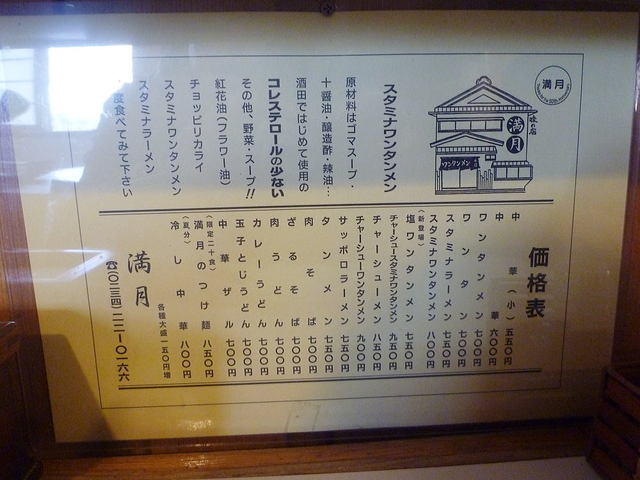 満月
満月
ワンタンメン
スタミナワンタンメン
原材料はゴマスープ・
十醤油・醸造酢・辣油…
酒田ではじめて使用の
コレステロールの少ない
その他、野菜・スープ!!
紅花油(フラワー油)
チョッピリカライ
スタミナワンタンメン
スタミナラーメン
度食べてみて下さい
価格表
中華(小) 五五〇円
中華 六〇〇円
ワンタンメン 七〇〇円
ワンタン 七〇〇円
スタミナラーメン 七五〇円
スタミナワンタンメン 八〇〇円
(新登場)
塩ワンタンメン 七五〇円
チャーシュースタミナワンタンメン 九五〇円
チャーシューメン 八五〇円
チャーシューワンタンメン 九〇〇円
サッポロラーメン 七五〇円
タンメン 七五〇円
肉そば 七〇〇円
ざるそば 七〇〇円
肉うどん 七〇〇円
カレーうどん 七〇〇円
玉子とじうどん 七〇〇円
中華ザル 七〇〇円
(限定二十食)
満月のつけ麺 八五〇円
(夏分)
冷し中華 八〇〇円
各種大盛一五〇円増
満月
☎(〇二三四)二二-〇一六六